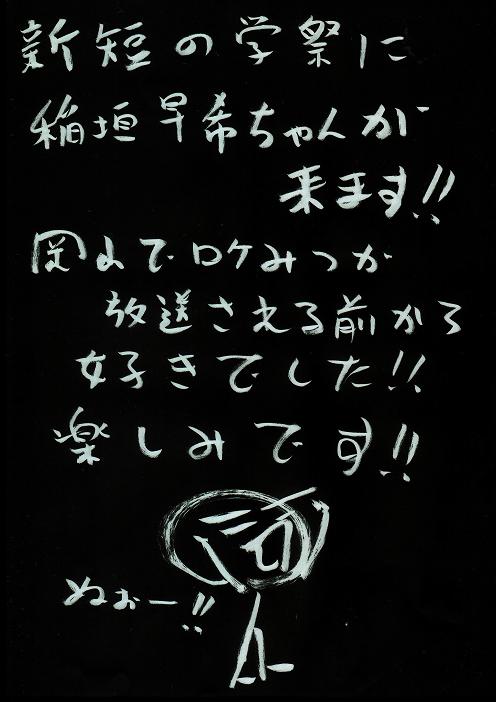 新短の学祭に
稲垣早希ちゃんが
来ます!!
岡山でロケみつが
放送される前から
好きでした!!
楽しみです!!
ぬぉー!!